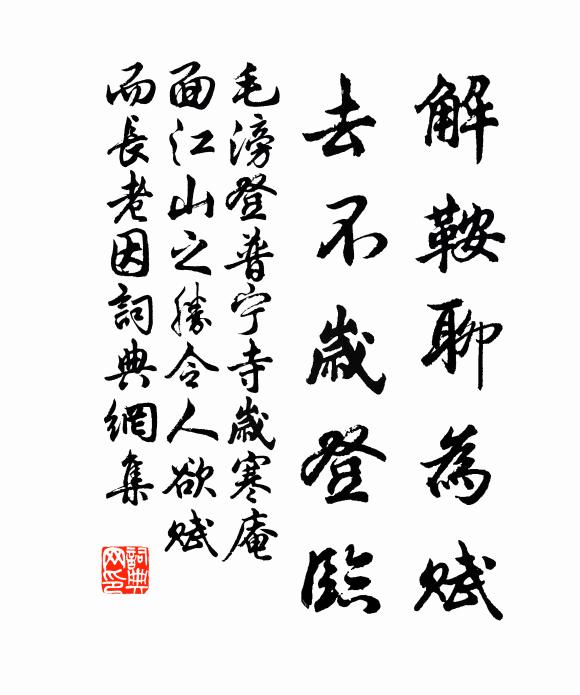 解鞍聊為赋
去不歲登臨
毛滂登普宁寺歲寒庵
面江山之勝令人欲赋
而長老因詞典網集
詞典
网印